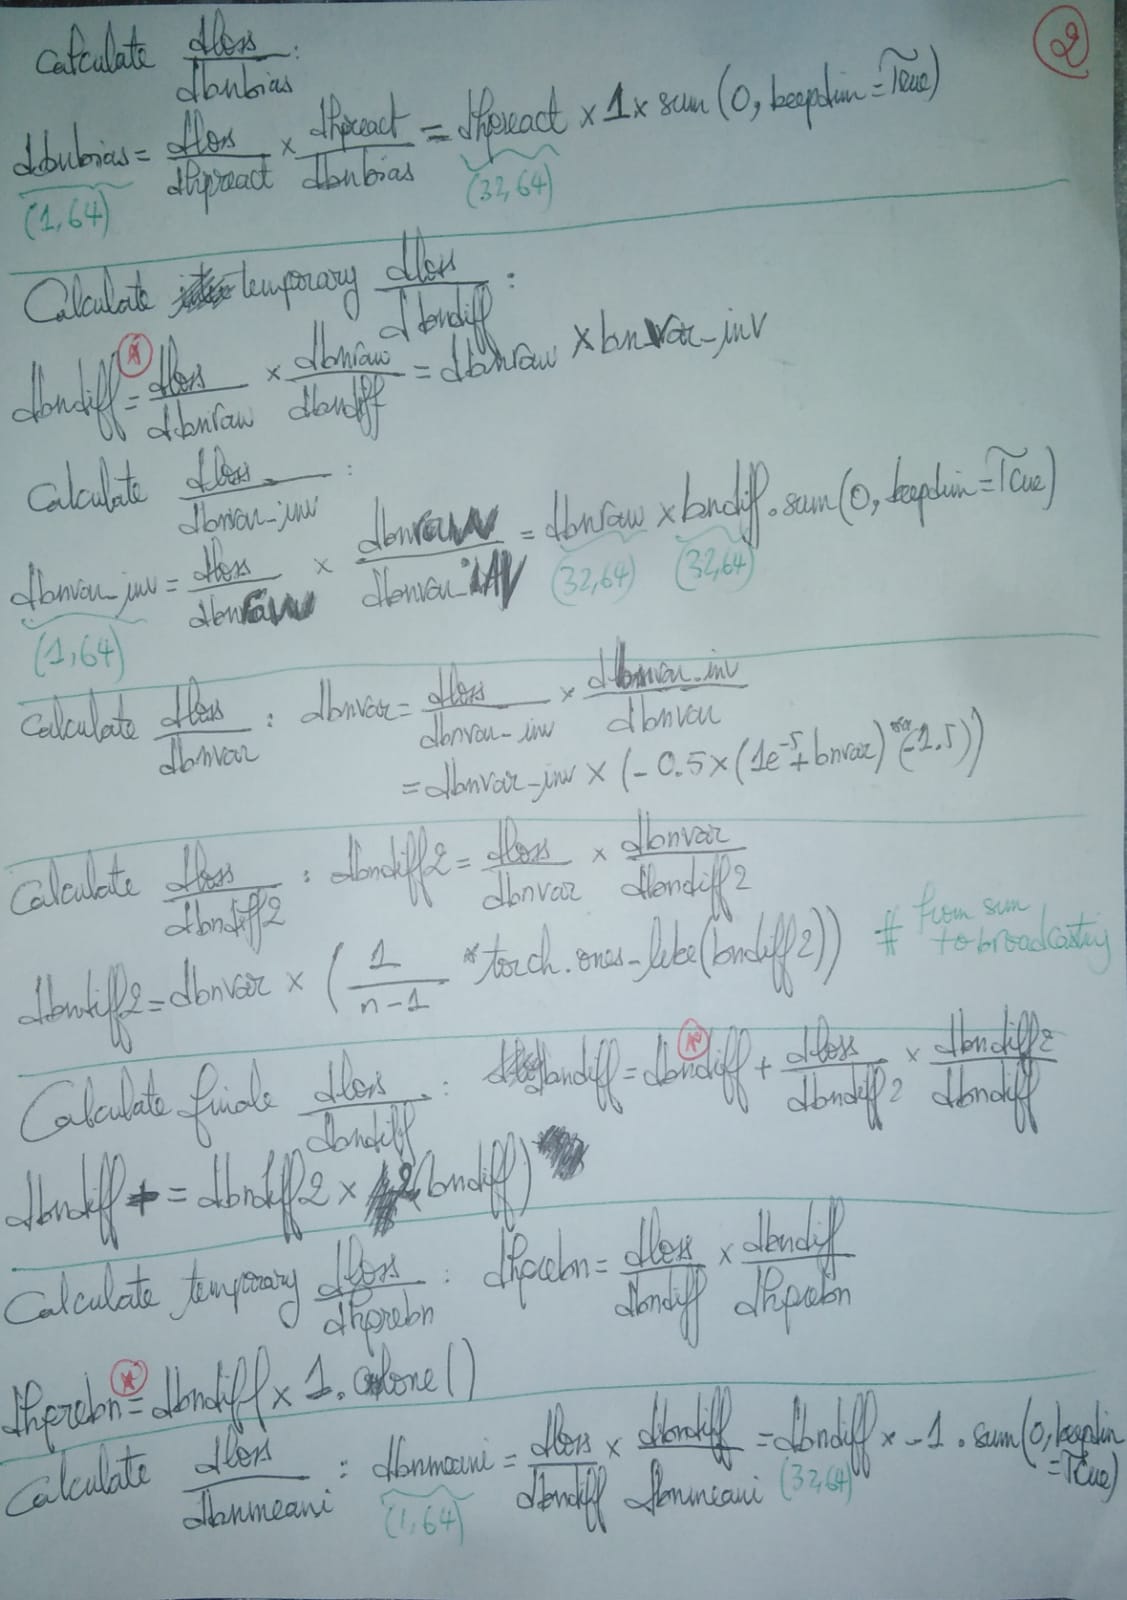 2
Calculate dloss/dbnbias :
dbnbias = dloss/dhpreact × dhpreact/dbnbias = dhpreact × 1 × sum(0, keepdim = True)
(1,64) (32,64)
Calculate temporary dloss/dbndiff :
dbndiff = dloss/dbnraw × dbnraw/dbndiff = dbnraw × bnvar_inv
Calculate dloss/dbnvar_inv :
dbnvar_inv = dloss/dbnraw × dbnraw/dbnvar_inv = dbnraw × bndiff.sum(0, keepdim = True)
(1,64) (32,64) (32,64)
Calculate dloss/dbnvar : dbnvar = dloss/dbnvar_inv × dbnvar_inv/dbnvar
= dbnvar_inv × (-0.5 × (1e^-5 + bnvar)**(-1.5))
Calculate dloss/dbndiff2 : dbndiff2 = dloss/dbnvar × dbnvar/dbndiff2
dbndiff2 = dbnvar × (1/(n-1) * torch.ones_like(bndiff2)) # from sum
to broadcasting
Calculate finale dloss/dbndiff : dbndiff = dbndiff + dloss/dbndiff2 × dbndiff2/dbndiff
dbndiff += dbndiff2 × 2(bndiff)
Calculate temporary dloss/dhprebn : dhprebn = dloss/dbndiff × dbndiff/dhprebn
dhprebn = dbndiff × 1.clone()
Calculate dloss/dbnmeani : dbnmeani = dloss/dbndiff × dbndiff/dbnmeani = dbndiff × -1.sum(0, keepdim
= True)
(1,64) (32,64)